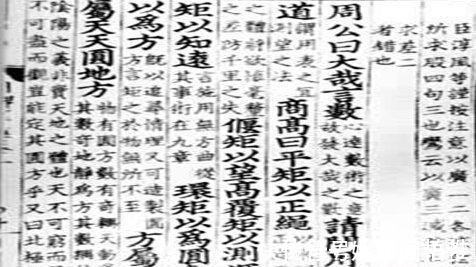 臣淳風等謹按注意以廣一各
所求股四句三也鸞云以廣三減
求差二
者錯也
周公曰大哉言數心達數術之意故發大哉之歎請問用
道謂用表之宜測望之法商高曰平矩以正繩
之體將欲慎毫釐之差防千里之失偃矩以望高覆矩以測深
矩以知遠言施用無方曲從其事術在九章環矩以爲圓
以爲方既以追尋情理又可造製圓方言矩之於物無所不至方屬
屬天天圓地方物有圓方數有奇耦天動其數奇地靜爲方其數耦
陰陽之義非實天地之體也天不可窮而
不可盡而觀豈能定其圓方乎又曰北極